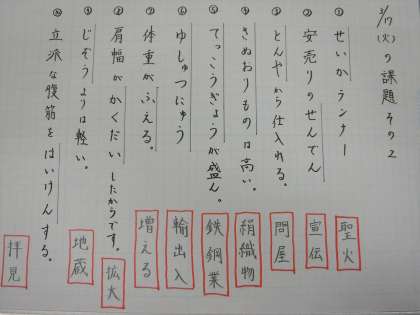 3/17(火)の課題その2
① せいかランナー 聖火
② 安売りのせんでん 宣伝
③ とんやから仕入れる。 問屋
④ きぬおりものは高い。 絹織物
⑤ てっこうぎょうが盛ん。 鉄鋼業
⑥ ゆしゅつにゅう 輸出入
⑦ 体重がふえる。 増える
⑧ 肩幅がかくだいしたからです。 拡大
⑨ じぞうよりは軽い。 地蔵
⑩ 立派な腹筋をはいけんする。 拝見